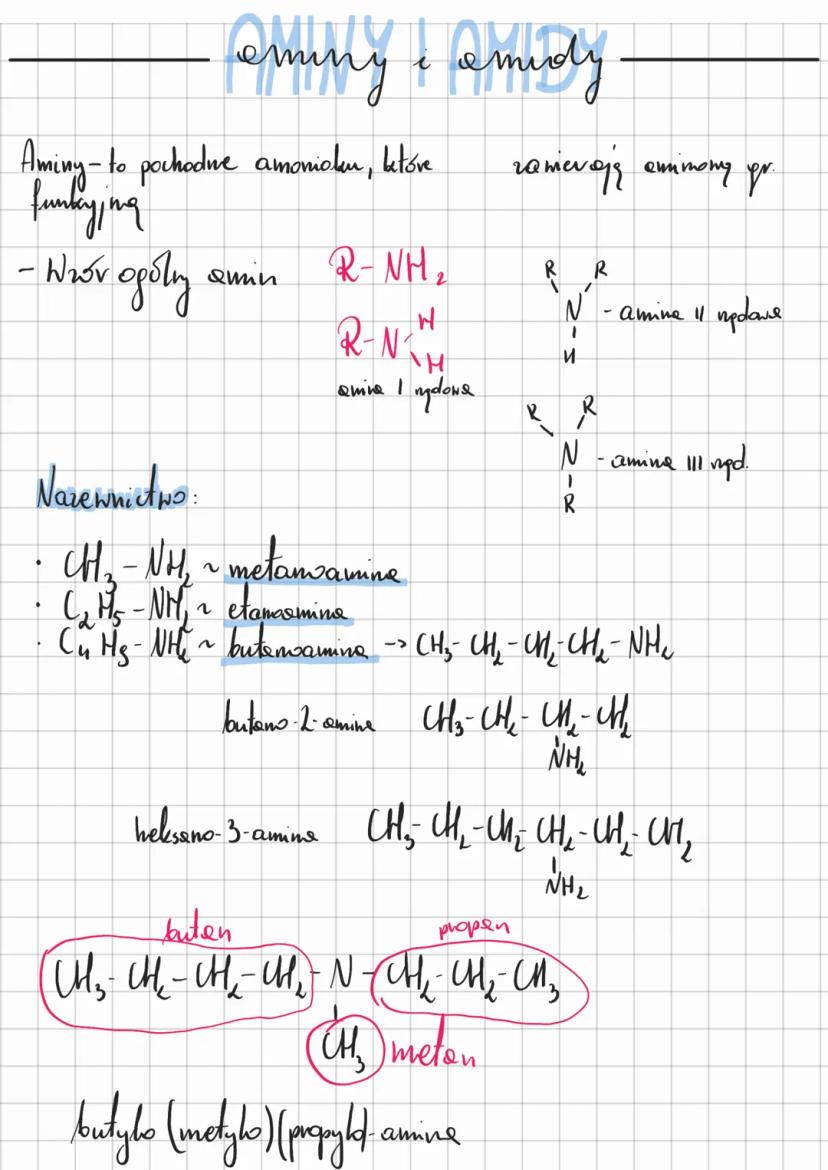 AMINY I AMIDY
aminy i amidy
Aminy - to pochodne amoniaku, które zawierają aminową gr.
funkcyjną
- Wzór ogólny amin
R-NH2
R-N
H
H
amina I rzędowa
R R
N - amina II rzędowa
H
R R
N - amina III rzęd.
R
Nazewnictwo:
· CH3-NH2 ~ metanoamina
· C2H5-NH2 ~ etanoamina
· C4H9-NH2 ~ butanoamina -> CH3-CH2-CH2-CH2-NH2
butano-2-amina CH3-CH2-CH2-CH2
NH2
heksano-3-amina CH3-CH2-CH2-CH2-CH2-CH2
NH2
butan propan
CH3-CH2-CH2-CH2-N-CH2-CH2-CH3
CH3 metan
butylo(metylo)(propylo)-amina